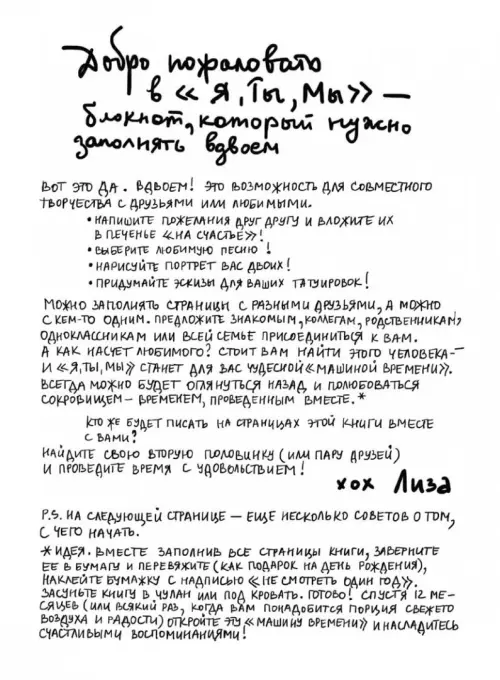 Добро пожаловать
в «Я, Ты, Мы» —
блокнот, который нужно
заполнять вдвоем
ВОТ ЭТО ДА. ВДВОЕМ! ЭТО ВОЗМОЖНОСТЬ ДЛЯ СОВМЕСТНОГО
ТВОРЧЕСТВА С ДРУЗЬЯМИ ИЛИ ЛЮБИМЫМИ.
• НАПИШИТЕ ПОЖЕЛАНИЯ ДРУГ ДРУГУ И ВЛОЖИТЕ ИХ
В ПЕЧЕНЬЕ «НА СЧАСТЬЕ»!
• ВЫБЕРИТЕ ЛЮБИМУЮ ПЕСНЮ!
• НАРИСУЙТЕ ПОРТРЕТ ВАС ДВОИХ!
• ПРИДУМАЙТЕ ЭСКИЗЫ ДЛЯ ВАШИХ ТАТУИРОВОК!
МОЖНО ЗАПОЛНЯТЬ СТРАНИЦЫ С РАЗНЫМИ ДРУЗЬЯМИ, А МОЖНО
С КЕМ-ТО ОДНИМ. ПРЕДЛОЖИТЕ ЗНАКОМЫМ, КОЛЛЕГАМ, РОДСТВЕННИКАМ,
ОДНОКЛАССНИКАМ ИЛИ ВСЕЙ СЕМЬЕ ПРИСОЕДИНИТЬСЯ К ВАМ.
А КАК НАСЧЕТ ЛЮБИМОГО? СТОИТ ВАМ НАЙТИ ЭТОГО ЧЕЛОВЕКА —
И «Я, ТЫ, МЫ» СТАНЕТ ДЛЯ ВАС ЧУДЕСНОЙ «МАШИНОЙ ВРЕМЕНИ».
ВСЕГДА МОЖНО БУДЕТ ОГЛЯНУТЬСЯ НАЗАД И ПОЛЮБОВАТЬСЯ
СОКРОВИЩЕМ — ВРЕМЕНЕМ, ПРОВЕДЕННЫМ ВМЕСТЕ.*
КТО ЖЕ БУДЕТ ПИСАТЬ НА СТРАНИЦАХ ЭТОЙ КНИГИ ВМЕСТЕ
С ВАМИ?
НАЙДИТЕ СВОЮ ВТОРУЮ ПОЛОВИНКУ (ИЛИ ПАРУ ДРУЗЕЙ)
И ПРОВЕДИТЕ ВРЕМЯ С УДОВОЛЬСТВИЕМ!
хох Лиза
P.S. НА СЛЕДУЮЩЕЙ СТРАНИЦЕ — ЕЩЕ НЕСКОЛЬКО СОВЕТОВ О ТОМ,
С ЧЕГО НАЧАТЬ.
* ИДЕЯ. ВМЕСТЕ ЗАПОЛНИВ ВСЕ СТРАНИЦЫ КНИГИ, ЗАВЕРНИТЕ
ЕЕ В БУМАГУ И ПЕРЕВЯЖИТЕ (КАК ПОДАРОК НА ДЕНЬ РОЖДЕНИЯ),
НАКЛЕЙТЕ БУМАЖКУ С НАДПИСЬЮ «НЕ СМОТРЕТЬ ОДИН ГОД».
ЗАСУНЬТЕ КНИГУ В ЧУЛАН ИЛИ ПОД КРОВАТЬ. ГОТОВО! СПУСТЯ 12 МЕ-
СЯЦЕВ (ИЛИ ВСЯКИЙ РАЗ, КОГДА ВАМ ПОНАДОБИТСЯ ПОРЦИЯ СВЕЖЕГО
ВОЗДУХА И РАДОСТИ) ОТКРОЙТЕ ЭТУ «МАШИНУ ВРЕМЕНИ» И НАСЛАДИТЕСЬ
СЧАСТЛИВЫМИ ВОСПОМИНАНИЯМИ!